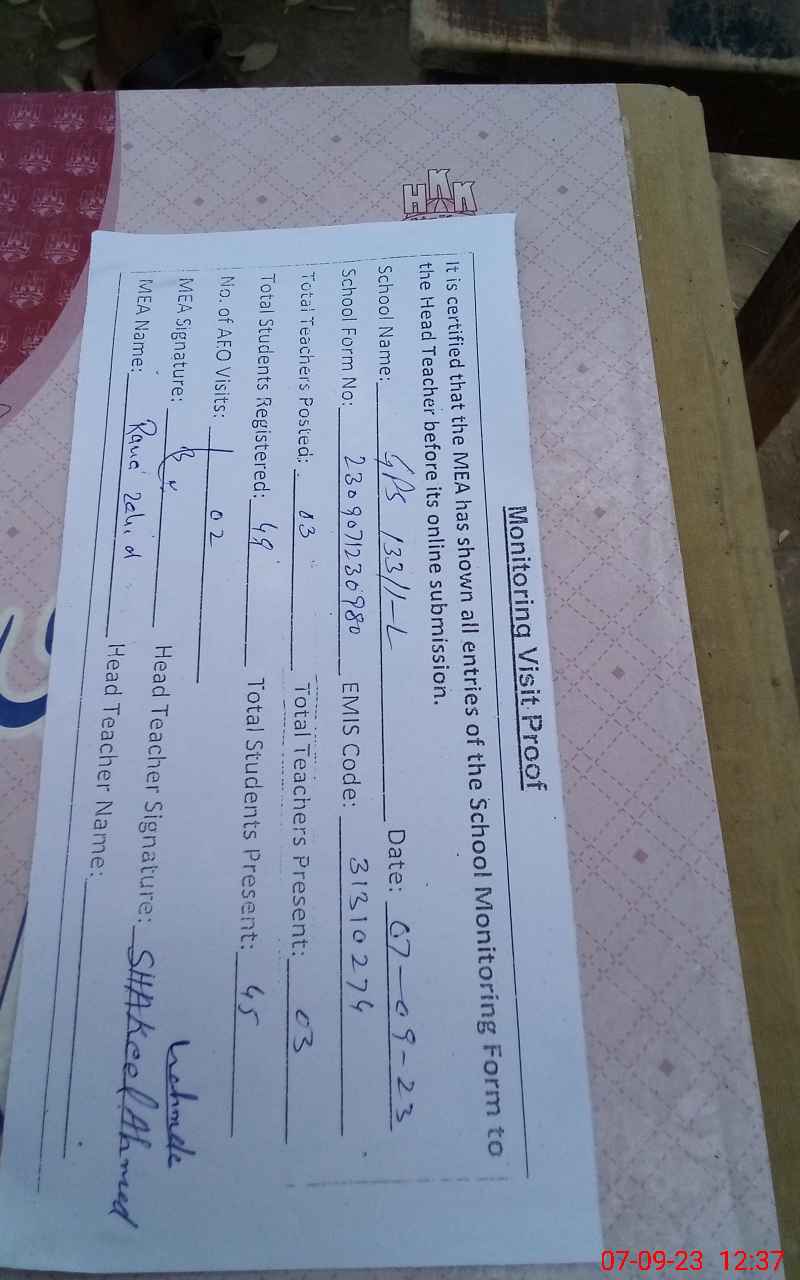 HKK
Monitoring Visit Proof
It is certified that the MEA has shown all entries of the School Monitoring Form to
the Head Teacher before its online submission.
School Name: GPS 133/1-L Date: 07-09-23
School Form No: 2309071230980 EMIS Code: 31310274
Total Teachers Posted: 03 Total Teachers Present: 03
Total Students Registered: 49 Total Students Present: 45
No. of AEO Visits: 02
MEA Signature: Head Teacher Signature:
MEA Name: Rana Zahid Head Teacher Name: SHAKeel Ahmed
07-09-23 12:37